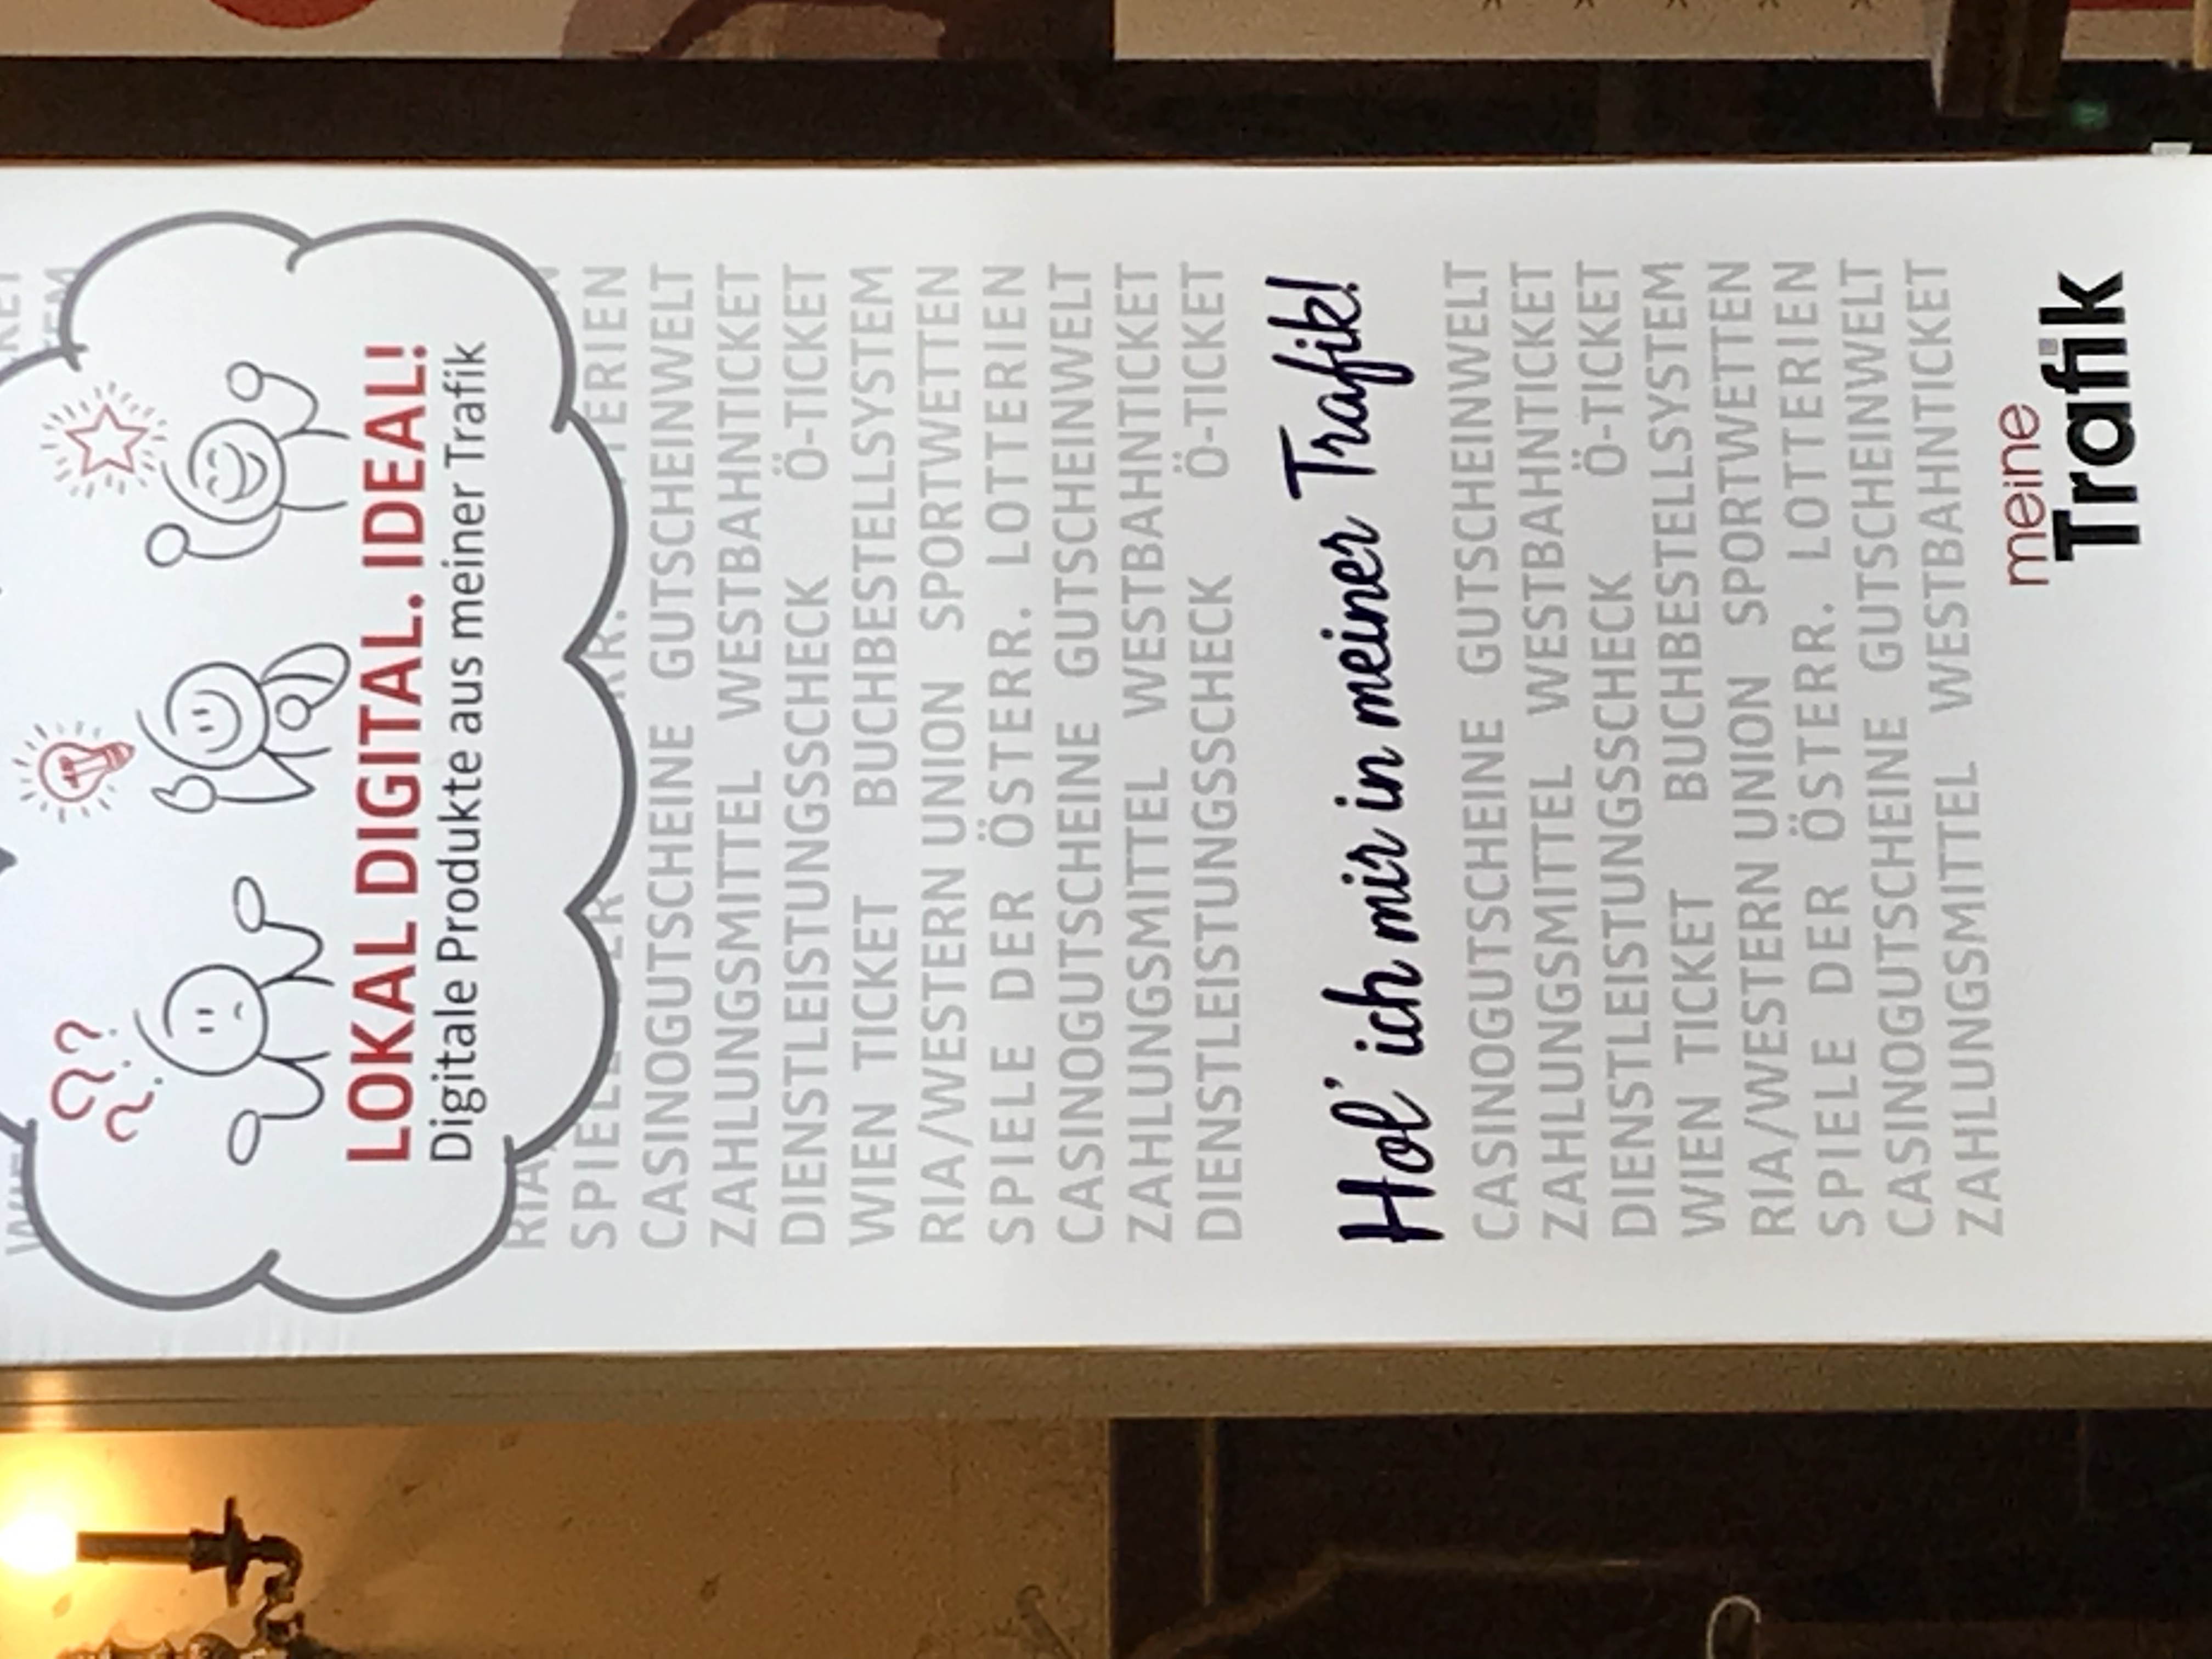 LOKAL DIGITAL. IDEAL!
Digitale Produkte aus meiner Trafik
CASINOGUTSCHEINE GUTSCHEINWELT
ZAHLUNGSMITTEL WESTBAHNTICKET
DIENSTLEISTUNGSSCHECK Ö-TICKET
WIEN TICKET BUCHBESTELLSYSTEM
RIA/WESTERN UNION SPORTWETTEN
SPIELE DER ÖSTERR. LOTTERIEN
CASINOGUTSCHEINE GUTSCHEINWELT
ZAHLUNGSMITTEL WESTBAHNTICKET
DIENSTLEISTUNGSSCHECK Ö-TICKET
Hol' ich mir in meiner Trafik!
CASINOGUTSCHEINE GUTSCHEINWELT
ZAHLUNGSMITTEL WESTBAHNTICKET
DIENSTLEISTUNGSSCHECK Ö-TICKET
WIEN TICKET BUCHBESTELLSYSTEM
RIA/WESTERN UNION SPORTWETTEN
SPIELE DER ÖSTERR. LOTTERIEN
CASINOGUTSCHEINE GUTSCHEINWELT
ZAHLUNGSMITTEL WESTBAHNTICKET
meine
Trafik